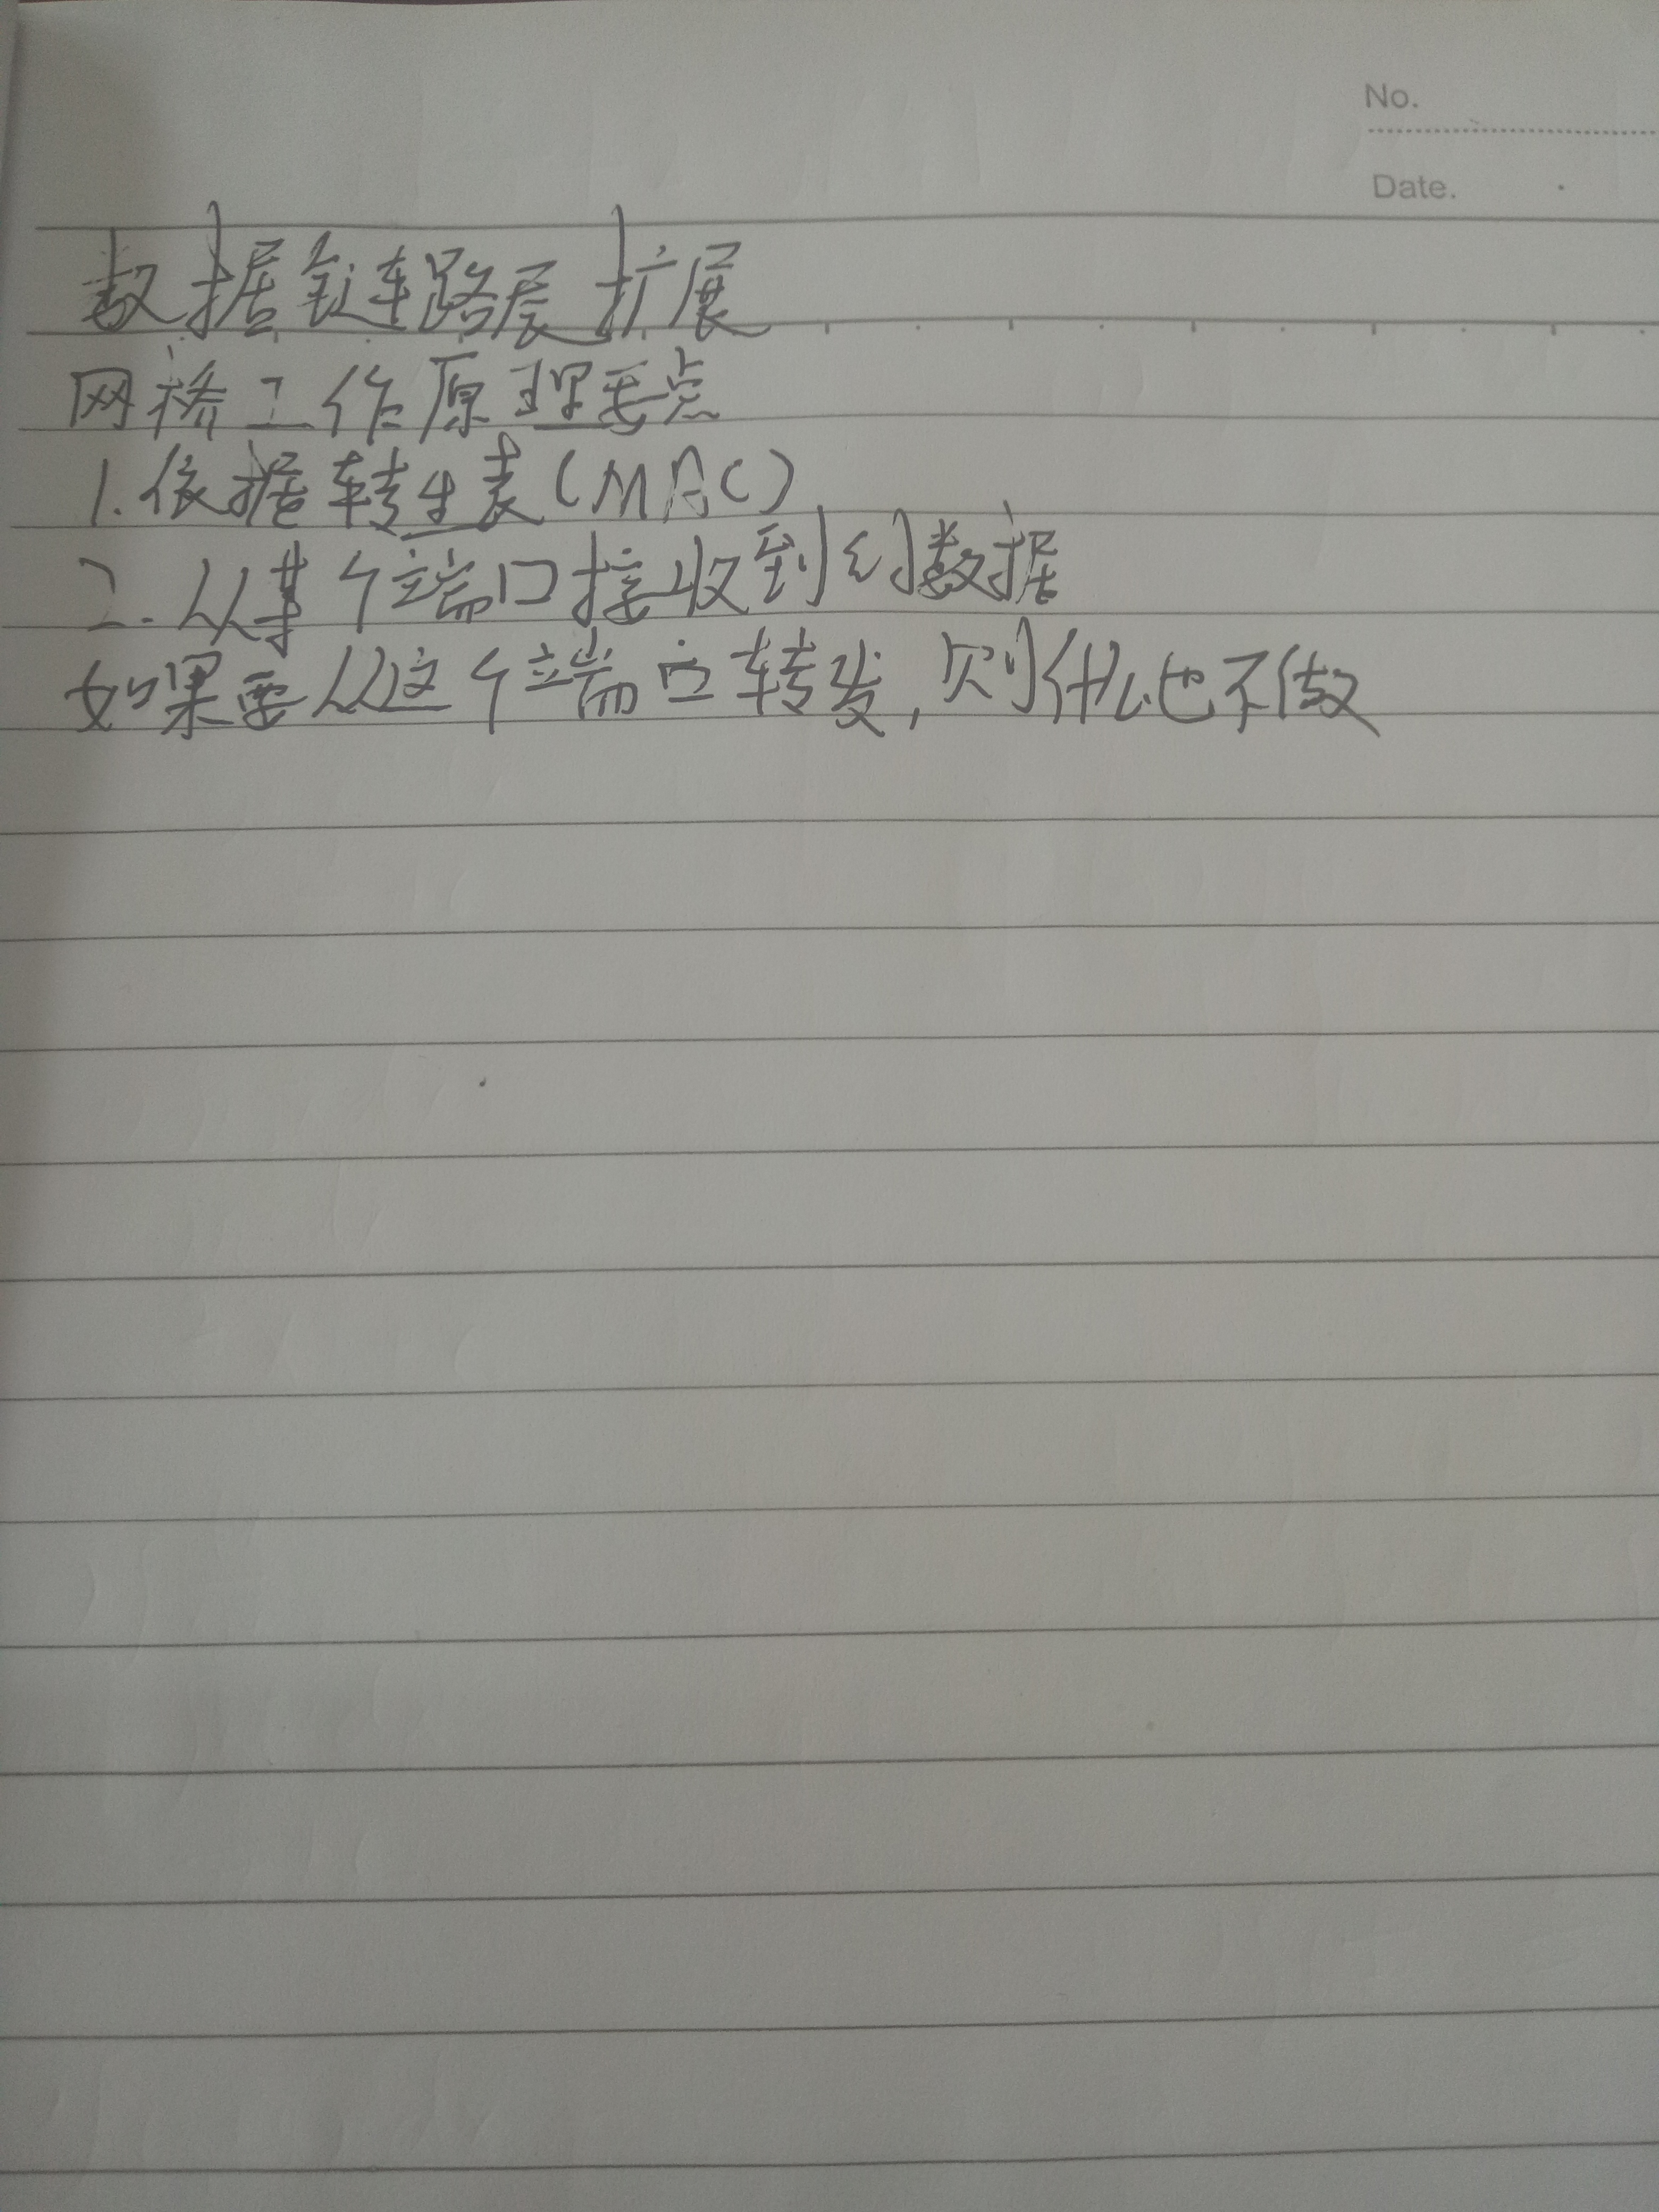 No.
Date.
数据链路层扩展
网桥工作原理要点
1.依据转发表(MAC)
2.从某个端口接收到的数据
如果要从这个端口转发,则什么也不做